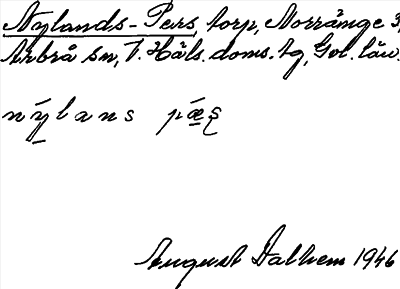 Nylands-Pers, torp, Norränge 3,
Arbrå sn, V. Häls. doms. tg, Gvl. län.
nýlans pæ̱ʂ
August Dalhem 1946